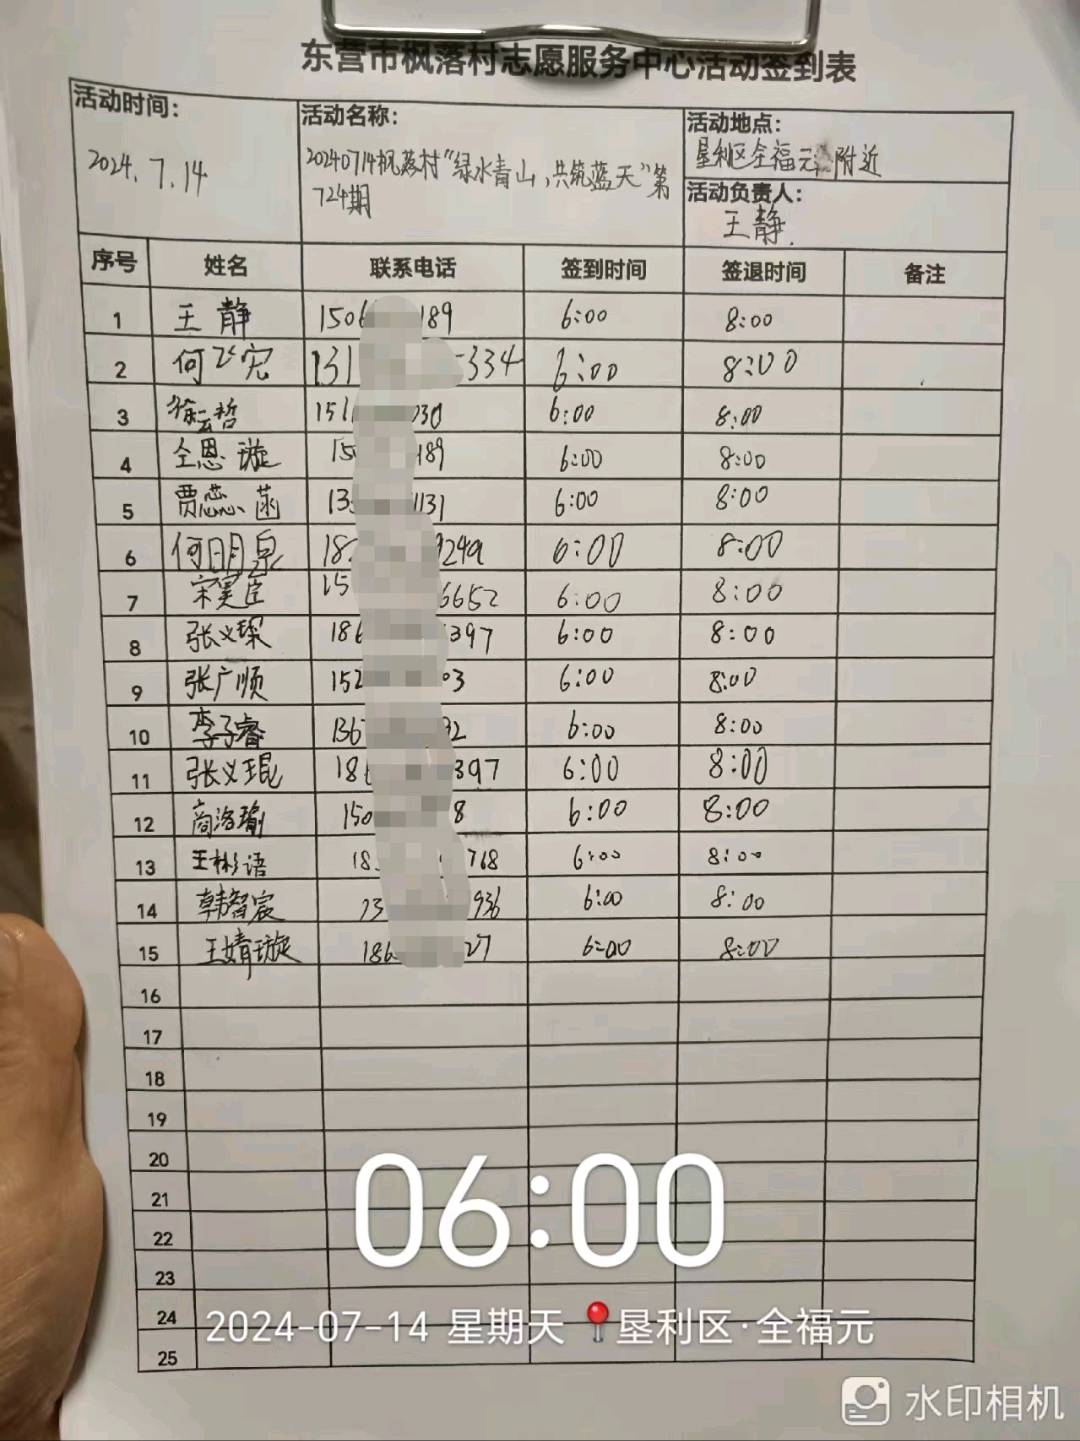 东营市枫落村志愿服务中心活动签到表
活动时间：
2024.7.14
活动名称：
20240714枫落村“绿水青山，共筑蓝天”第
724期
活动地点：
垦利区全福元 附近
活动负责人：
王静
序号 姓名 联系电话 签到时间 签退时间 备注
1 王静 150 189 6:00 8:00
2 何 宪 131 334 6:00 8:00
3 徐云哲 151 030 6:00 8:00
4 仝恩璇 15 189 6:00 8:00
5 贾蕊菡 13 1131 6:00 8:00
6 何明泉 18 9249 6:00 8:00
7 宋 臣 15 6652 6:00 8:00
8 张义琛 186 397 6:00 8:00
9 张广顺 152 03 6:00 8:00
10 李子睿 136 92 6:00 8:00
11 张义琨 18 397 6:00 8:00
12 商洛瑜 150 8 6:00 8:00
13 王彬语 18 768 6:00 8:00
14 韩智宸 936 6:00 8:00
15 王婧璇 186 27 6:00 8:00
16
17
18
19
20
21
22
23
24
25
06:00
2024-07-14 星期天 垦利区·全福元
水印相机